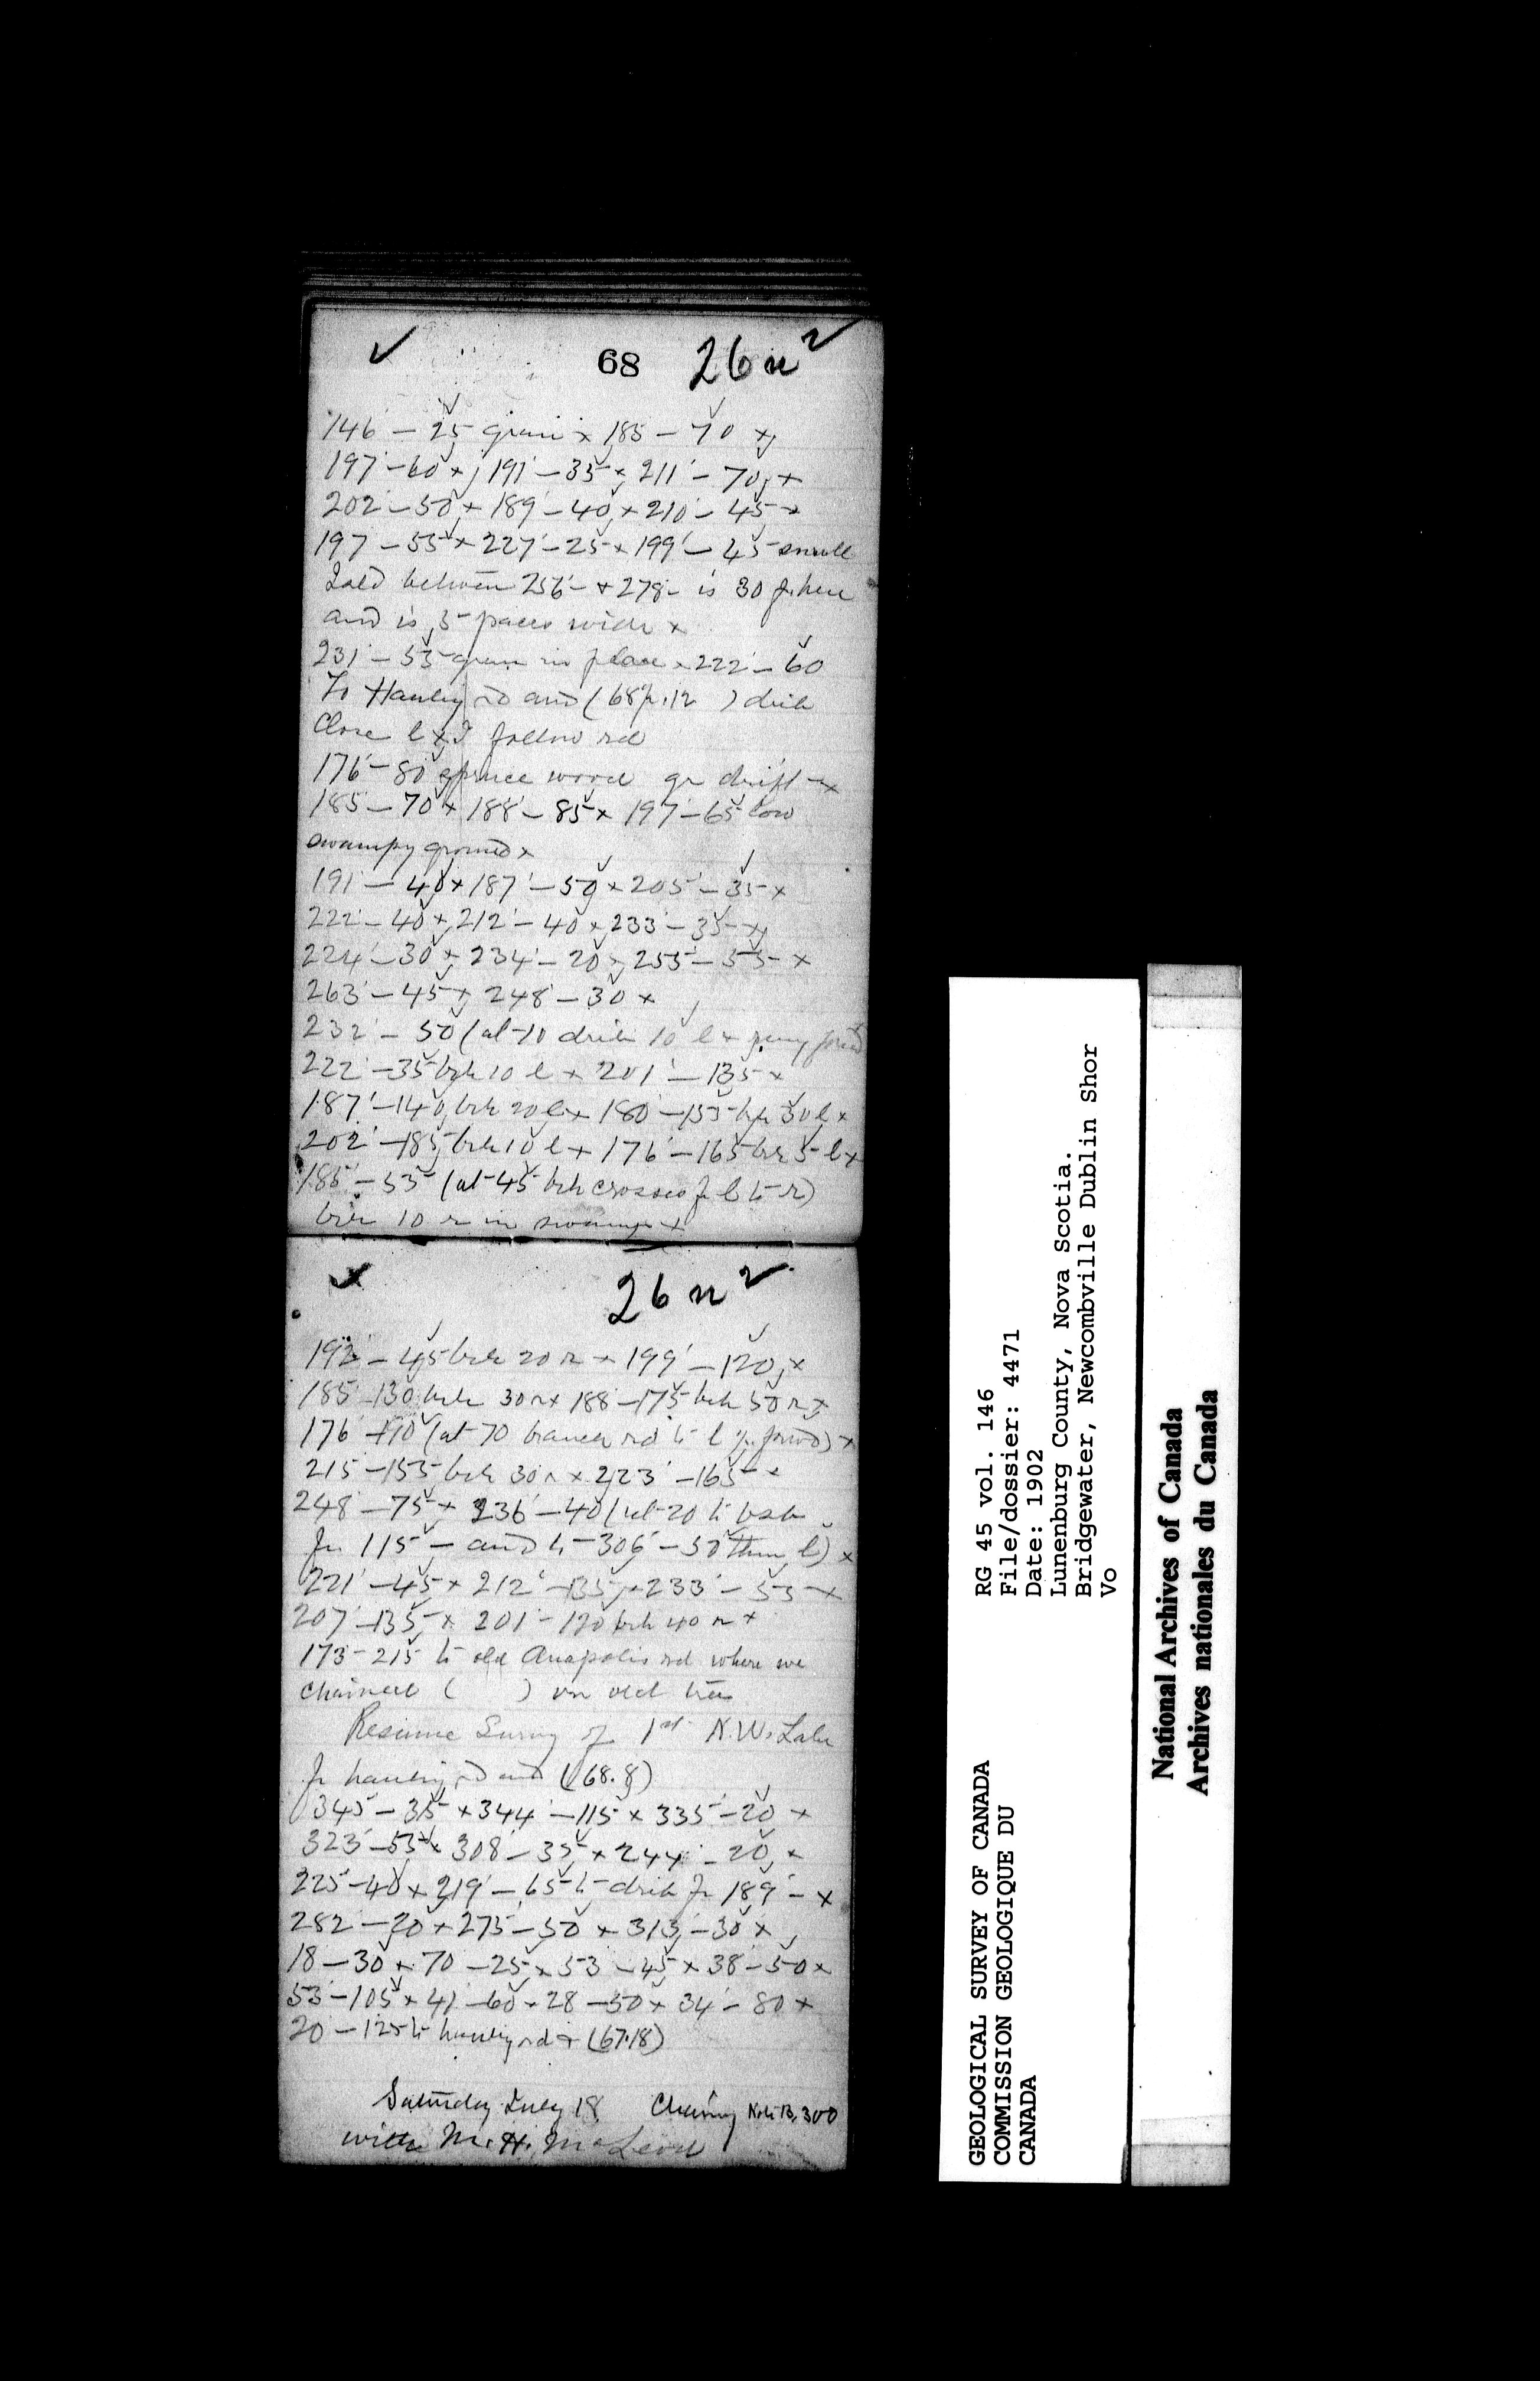 ✓ 68 26n²
146 – 25 x 185 – 70 x
197 – 60 x 191 – 35 x 211 – 70 x
202 – 50 x 189 – 40 x 210 – 45 x
197 – 55 x 227 – 25 x 199 – 45 small
between 256 – + 278 – is 30 fr here
and is 5 paces wide x
231 – 55 in place x 222 – 60
To rd and (68 p. 12 )
close l x I follow rd
176 – 80 spruce wood gr drift x
185 – 70 x 188 – 85 x 197 – 65 low
swampy ground x
191 – 40 x 187 – 50 x 205 – 35 x
222 – 40 x 212 – 40 x 233 – 35 x
224 – 30 x 234 – 20 x 255 – 55 x
263 – 45 x 248 – 30 x
232 – 50 (at 10 10 l x
222 – 35 brk 10 l x 201 – 135 x
187 – 140 brk 20 l x 180 – 155 brk 30 l x
202 – 185 brk 10 l x 176 – 165 brk 5 l x
185 – 55 (at 45 brk crosses fr l to r)
10 r in swamp x
x 26n²
192 – 45 brk 20 r x 199 – 120 x
185 – 130 brk 30 r x 188 – 175 brk 50 r x
176 – 110 (at 70 branch rd to l x
215 – 155 brk 30 r x 223 – 165 x
248 – 75 x 236 – 40 (at 20 to
fr 115 – and to 306 – 50 then l) x
221 – 45 x 212 – 135 x 233 – 55 x
207 – 135 x 201 – 120 brk 40 r x
173 – 215 to old Anapolis rd where we
chained ( ) on old
Resume Survey of 1st N.W. Lake
fr hauling rd and (68.8)
345 – 35 x 344 – 115 x 335 – 20 x
323 – 55 x 308 – 35 x 244 – 20 x
225 – 40 x 219 – 65 to fr 189 – x
282 – 20 x 275 – 50 x 313 – 30 x
18 – 30 x 70 – 25 x 53 – 45 x 38 – 50 x
53 – 105 x 41 – 60 x 28 – 50 x 34 – 80 x
20 – 125 to hauling rd x (67.18)
Saturday July 18 Chaining 300
with M. H. McLeod
GEOLOGICAL SURVEY OF CANADA
COMMISSION GEOLOGIQUE DU
CANADA
RG 45 vol. 146
File/dossier: 4471
Date: 1902
Lunenburg County, Nova Scotia.
Bridgewater, Newcombville Dublin Shor
Vo
National Archives of Canada
Archives nationales du Canada